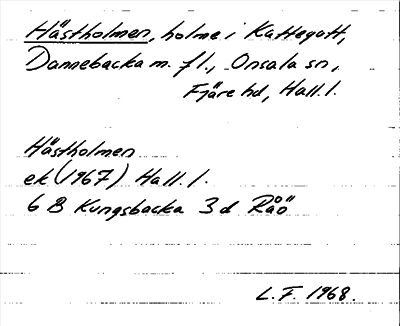 Hästholmen, holme i Kattegatt,
Dannebacka m. fl., Onsala sn,
Fjäre hd, Hall. l.
Hästholmen
ek (1967) Hall. l.
6 B Kungsbacka 3 d Råö
L. F. 1968.